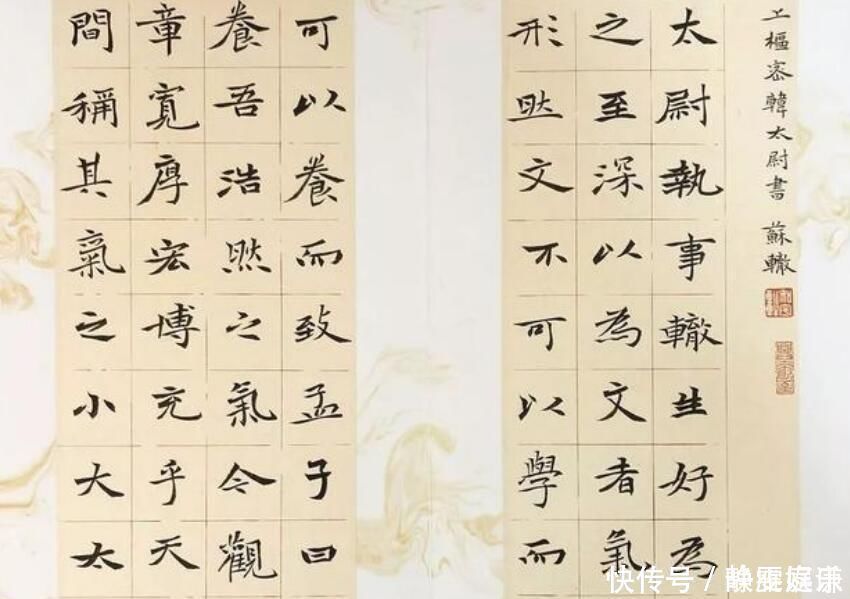 上樞密韓太尉書 蘇轍
太尉執事轍生好為
之至深以為文者氣
形然文不可以學而
可以養而致孟子曰
養吾浩然之氣今觀
章寬厚宏博充乎天
間稱其氣之小大太
快传号 /